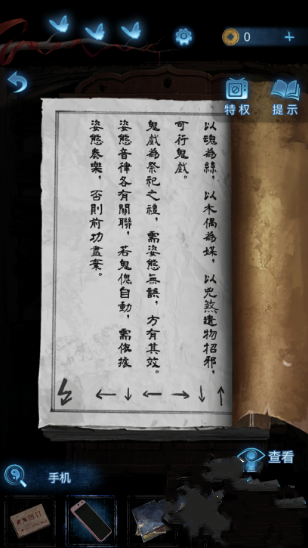 0
特权
提示
以魂為絲，以木偶為媒，以兇煞遺物招邪，
可行鬼戲。
鬼戲為祭祀之禮，需姿態無誤，方有其效。
姿態音律各有關聯，若鬼傀自動，需依據
姿態奏樂，否則前功盡棄。
查看
手机